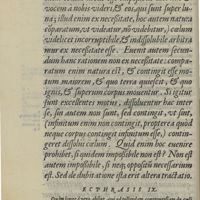 vocem a nobis videri, & eoi, quæ sunt super lu-
na; illud enim ex necessitate, hoc autem natura
cōparatum, vt videatur, nō videbitur, cælum
videlicet incorruptibile, & indissolubile arbitra
mur ex necessitate esse. Euent autem secun-
dum hanc rationem non ex necessitate: compa-
ratum enim natura est, & contingit esse mo-
tum maximum, & quo terra quiescat, & mo
ignis, & superum corpus mouentur. Si igitur
sunt excellentes motus, dissoluentur hac inter
se, sin autem non sunt, sed infinitum aliquid
(infinitum enim non contingit, propterea quod
neque corpus contingit infinitum esse,) contin-
geret dissolui cælum. Quid enim hoc euenire
prohibet, siquidem non impossibile est? Non est
autem impossibile, si neq; oppositū necessarium
est. Sed de dubitatione ista erit altera tractatio.
ECPHRASIS IX.